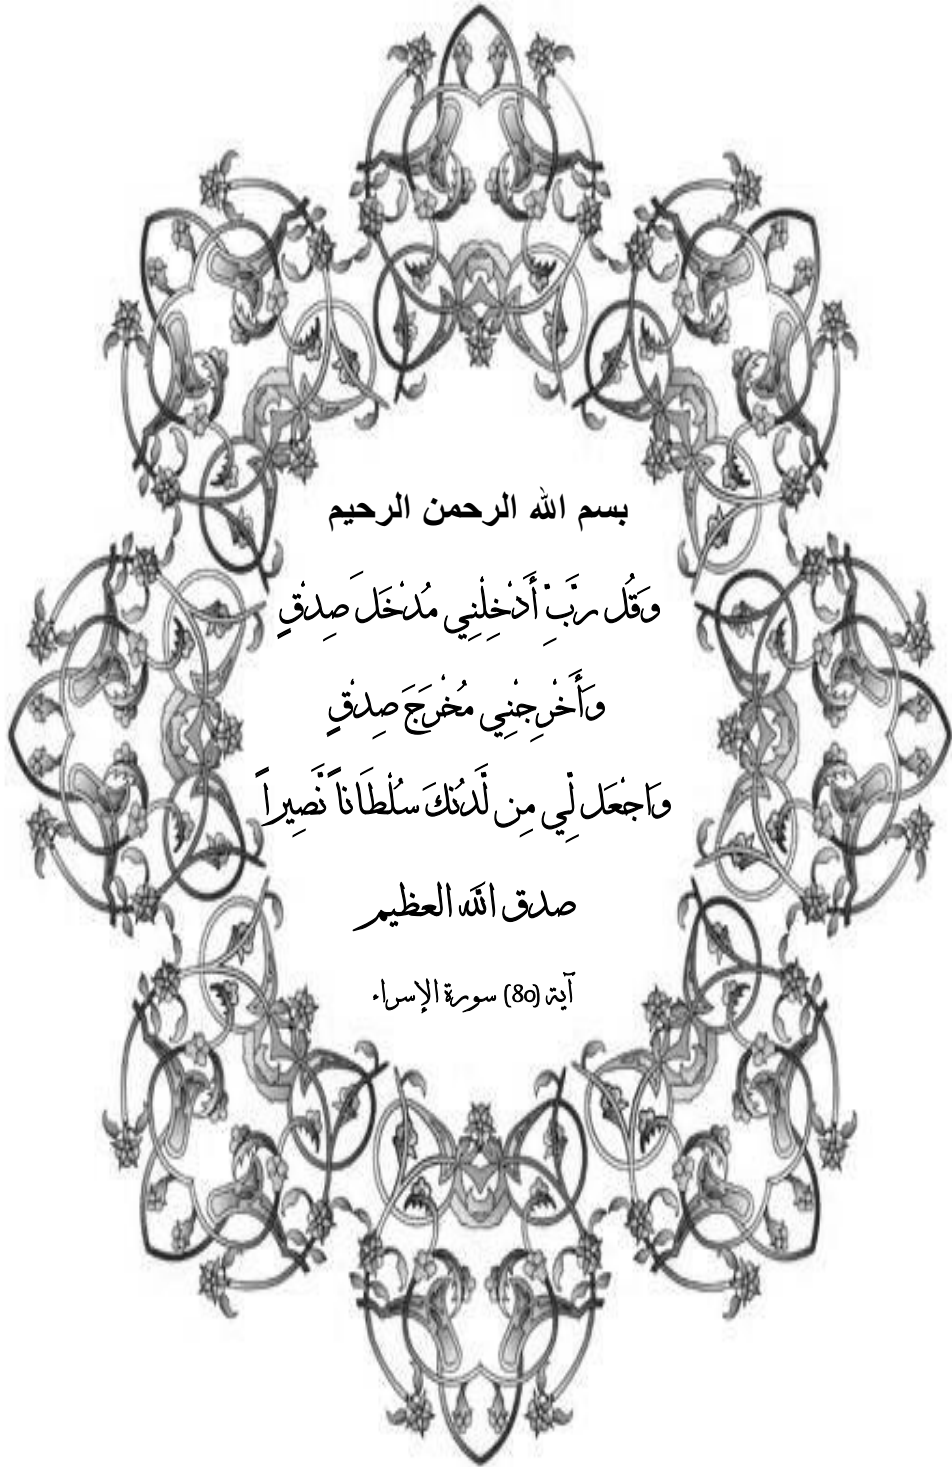 بسم الله الرحمن الرحيم
وَقُل رَّبِّ أَدْخِلْنِي مُدْخَلَ صِدْقٍ
وَأَخْرِجْنِي مُخْرَجَ صِدْقٍ
وَاجْعَل لِّي مِن لَّدُنكَ سُلْطَاناً نَّصِيراً
صدق الله العظيم
آية (80) سورة الإسراء